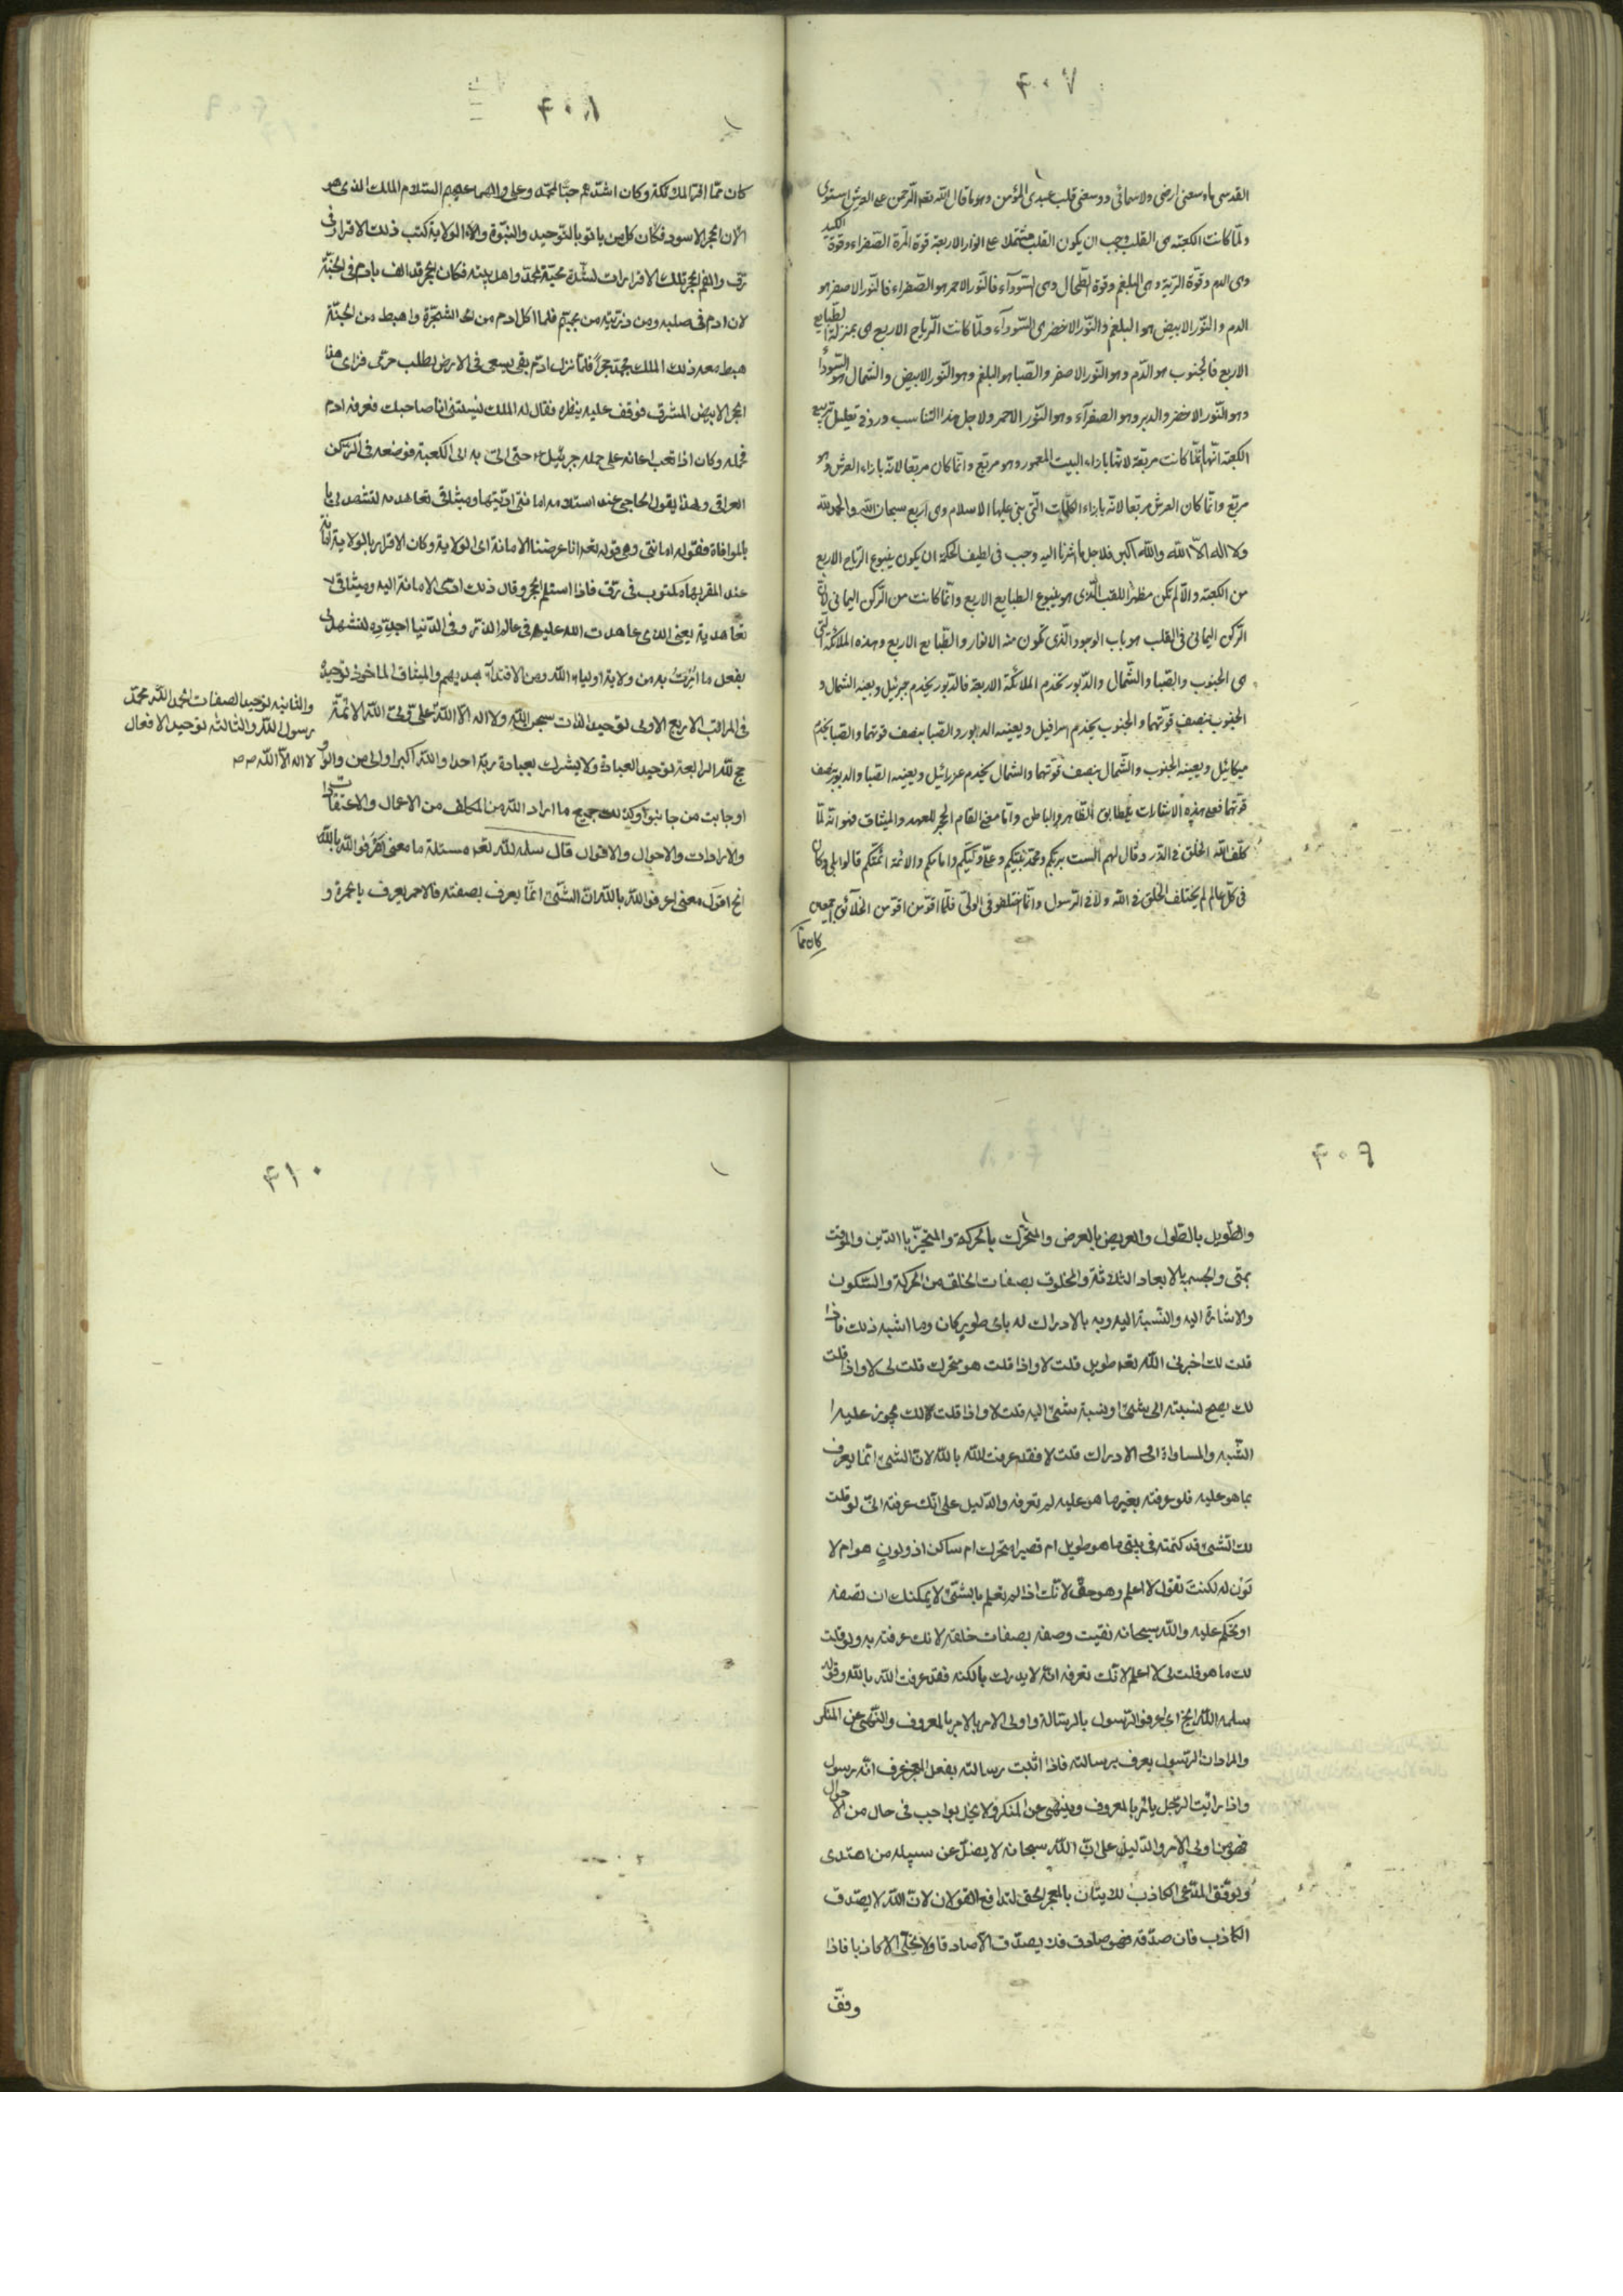 ٤٠٧
القدسى ماوسعنى ارضى ولاسمائى ووسعنى قلب عبدى المؤمن وهو ما قال الله تعه الرحمن على العرش استوى
ولمّا كانت الكعبة هى القلب وجب ان يكون القلب مشتملا على الانوار الاربعة قوة المرة الصفراء وقوة الكبد
وهى الدم وقوة الرية وهى البلغم وقوة الطحال وهى السّودآء فالنّور الاحمر هو الصّفراء فالنّور الاصفر هو
الدم والنّور الابيض هو البلغم والنّور الاخضر هى السّودآء ولمّا كانت الرّياح الاربع هى بمنزلة الطبايع
الاربع فالجنوب هو الدّم وهو النّور الاصفر والصّبا هو البلغم وهو النّور الابيض والشمال هو السّودأ
وهو النّور الاخضر والدبر وهو الصفرآء وهو النّور الاحمر ولاجل هذا التناسب ورد فى تعليل تربيع
الكعبة انّها انّما كانت مربّعة لانّها بازاء البيت المعمور وهو مربّع وانّما كان مربّعا لانّه بازاء العرش وهو
مربّع وانّما كان العرش مربّعا لانّه بازاء الكلمات الّتى بنى عليها الاسلام وهى اربع سبحان الله والحمد لله
ولا اله الّا الله والله اكبر فلاجل ما اشرنا اليه وجب فى لطيف الحكمة ان يكون ينبوع الرّياح الاربع
من الكعبة والّا لم تكن مظهرا للقلب الّذى هو ينبوع الطبايع الاربع وانّما كانت من الرّكن اليمانى لانّ
الرّكن اليمانى فى القلب هو باب الوجود الّذى تكون منه الانوار والطّبايع الاربع وهذه الملائكة الّتى
هى الجنوب والصّبا والشّمال والدّبور تخدم الملائكة الاربعة فالدّبور يخدم جبرئيل ويعينه الشمال و
الجنوب بنصف قوّتهما والجنوب يخدم اسرافيل ويعينه الدبور والصّبا بنصف قوتهما والصّبا يخدم
ميكائيل ويعينه الجنوب والشّمال بنصف قوّتهما والشمال يخدم عزرائيل ويعينه الصّبا والدبور بنصف
قوّتهما فعلى هذه الاشارات يتطابق الظاهر والباطن وامّا معنى القام الحجر للعهد والميثاق فهو انّه لمّا
كلّف الله الخلق فى الذّر وقال لهم الست بربّكم ومحمّد نبيّكم وعلىّ وليّكم وامامكم والائمة ائمّتكم قالوا بلى وكان
فى كلّ عالم لم يختلف الخلق فى الله ولا فى الرّسول وانّما اختلفوا فى الولىّ فلمّا اقرّ من اقرّ من الخلائق اجمعين
كان ممّا
٤٠٨
كان ممّا اقرّ الملائكة وكان اشدّهم حبّا لمحمّد وعلى والهما عليهم السّلام الملك الذى هو
الان الحجر الاسود فكان كل من يا تو بالتّوحيد والنبّوة والا الولاية كتب ذلك الاقرار فى
رق والقم الحجر تلك الاقرارات لشدّة محبّة لمحمّد واهل بيته فكان الحجر قد الف بادم فى الجنّة
لان ادم فى صلبه ومن ذرّيته من يحبّهم فلما اكل ادم من الشّجرة واهبط من الجنّة
هبط معه ذلك الملك حجرا فلمّا نزل ادم بقى يسعى فى الارض يطلب حرمى فراى هذا
الحجر الابيض المشرق فوقف عليه ينظره فقال له الملك نسيتنى انا صاحبك فعرفه ادم
فحمله وكان اذا تعب اعانه على حمله جبرئيل ع حتى اتى به الى الكعبة فوضعه فى الرّكن
العراقى ولهذا يقول الحاجى عند استلامه امانتى ادّيتها وميثاقى تعاهدته لتشهد لى يا
بالموافاة فقوله امانتى وهى قوله تعه انا عرضنا الامانة اى الولاية وكان الاقرار بالولاية امانة
عند المقربها مكتوب فى رق فاذا استلم الحجر وقال ذلك ادّى الامانة اليه وميثاقى
تعاهدته يعنى الذى عاهدت الله عليه فى عالم الذّر وفى الدّنيا اجدّده لتشهد لى
بفعل ما امرت به من ولاية اولياء الله ومن الاقتدآء بهديهم والميثاق الماخوذ توحيده
فى المراتب الاربع الاولى توحيد الذات سبحان الله ولا اله الّا الله علىّ ولىّ الله الائمّة
والثانية توحيد الصفات الحمد لله محمّد
رسول الله والثالثة توحيد الافعال
لا اله الّا الله ص ص
حج لله الرابعة توحيد العبادة ولا يشرك بعبادة ربّه احدا والله اكبر اولى من والوا و
اوجابت من جانبوا وكذلك جميع ما اراد الله من المكلف من الاعمال والاعتقادات
والارادات والاحوال والاقوال قال سلمه الله تعه مسئلة ما معنى اعرفوا الله بالله
الخ اقول معنى اعرفوا الله بالله انّ الشّىء انّما يعرف بصفته فالاحمر يعرف بالحمرة و
٤٠٩
والطّويل بالطّول والعريض بالعرض والمتحرّك بالحركة والمتحيّز بالاين والموقت
بمتى والجسم بالابعاد الثلاثة والمخلوق بصفات الخلق من الحركة والسّكون
والاشارة اليه والنّسبة اليه وبه بالادراك له باىّ طور كان وما اشبه ذلك فاذا
قلت لك اخبرنى الله تعه طويل قلت لا واذا قلت هو متحرك قلت لى لا واذا قلت
لك يصحّ نسبته الى شىء او نسبة شىء اليه قلت لا واذا قلت لك يجوز عليه ا
الشّبه والمساواة او الادراك قلت لا فقد عرفت الله بالله لانّ الشىء انّما يعرف
بما هو عليه فلو عرفته بغير ما هو عليه لم تعرفه والدّليل على انّك عرفته انّى لو قلت
لك الشّىء قد كتمته فى بيتى ما هو طويل ام قصير امتحرك ام ساكن اذو لون هو ام لا
لون له لكنت تقول لا اعلم وهو حقّ لانّك اذا لم تعلم بالشّىء لا يمكنك ان تصفه
او تحكم عليه والله سبحانه نفيت وصفه بصفات خلقه لانك عرفته به ولو قلت
لك ما هو قلت لى لا اعلم لانّك تعرفه انّه لا يدرك بالكنه فقد عرفت الله بالله وقوله
سلمه الله الخ اى اعرفوا الرّسول بالرّسالة واولى الامر بالامر بالمعروف والنّهى عن المنكر
والمراد ان الرّسول يعرف برسالته فاذا اثبت رسالته بفعل المعجز عرف انّه رسول
واذا رايت الرّجل يامر بالمعروف وينهى عن المنكر ولا يخل بواجب فى حال من الاحوال
فهو من اولى الامر والدّليل على انّ الله سبحانه لا يضلّ عن سبيله من اهتدى
ويوفّق المدّعى الكاذب للاتيان بالمعجز الحق لتدافع القولان لانّ الله لا يصدّق
الكاذب فان صدّقه فهو صادق فلا يصدّق الّا صادقا ولا يخلّى الا كاذبا فاذا
وفّق
٤١٠